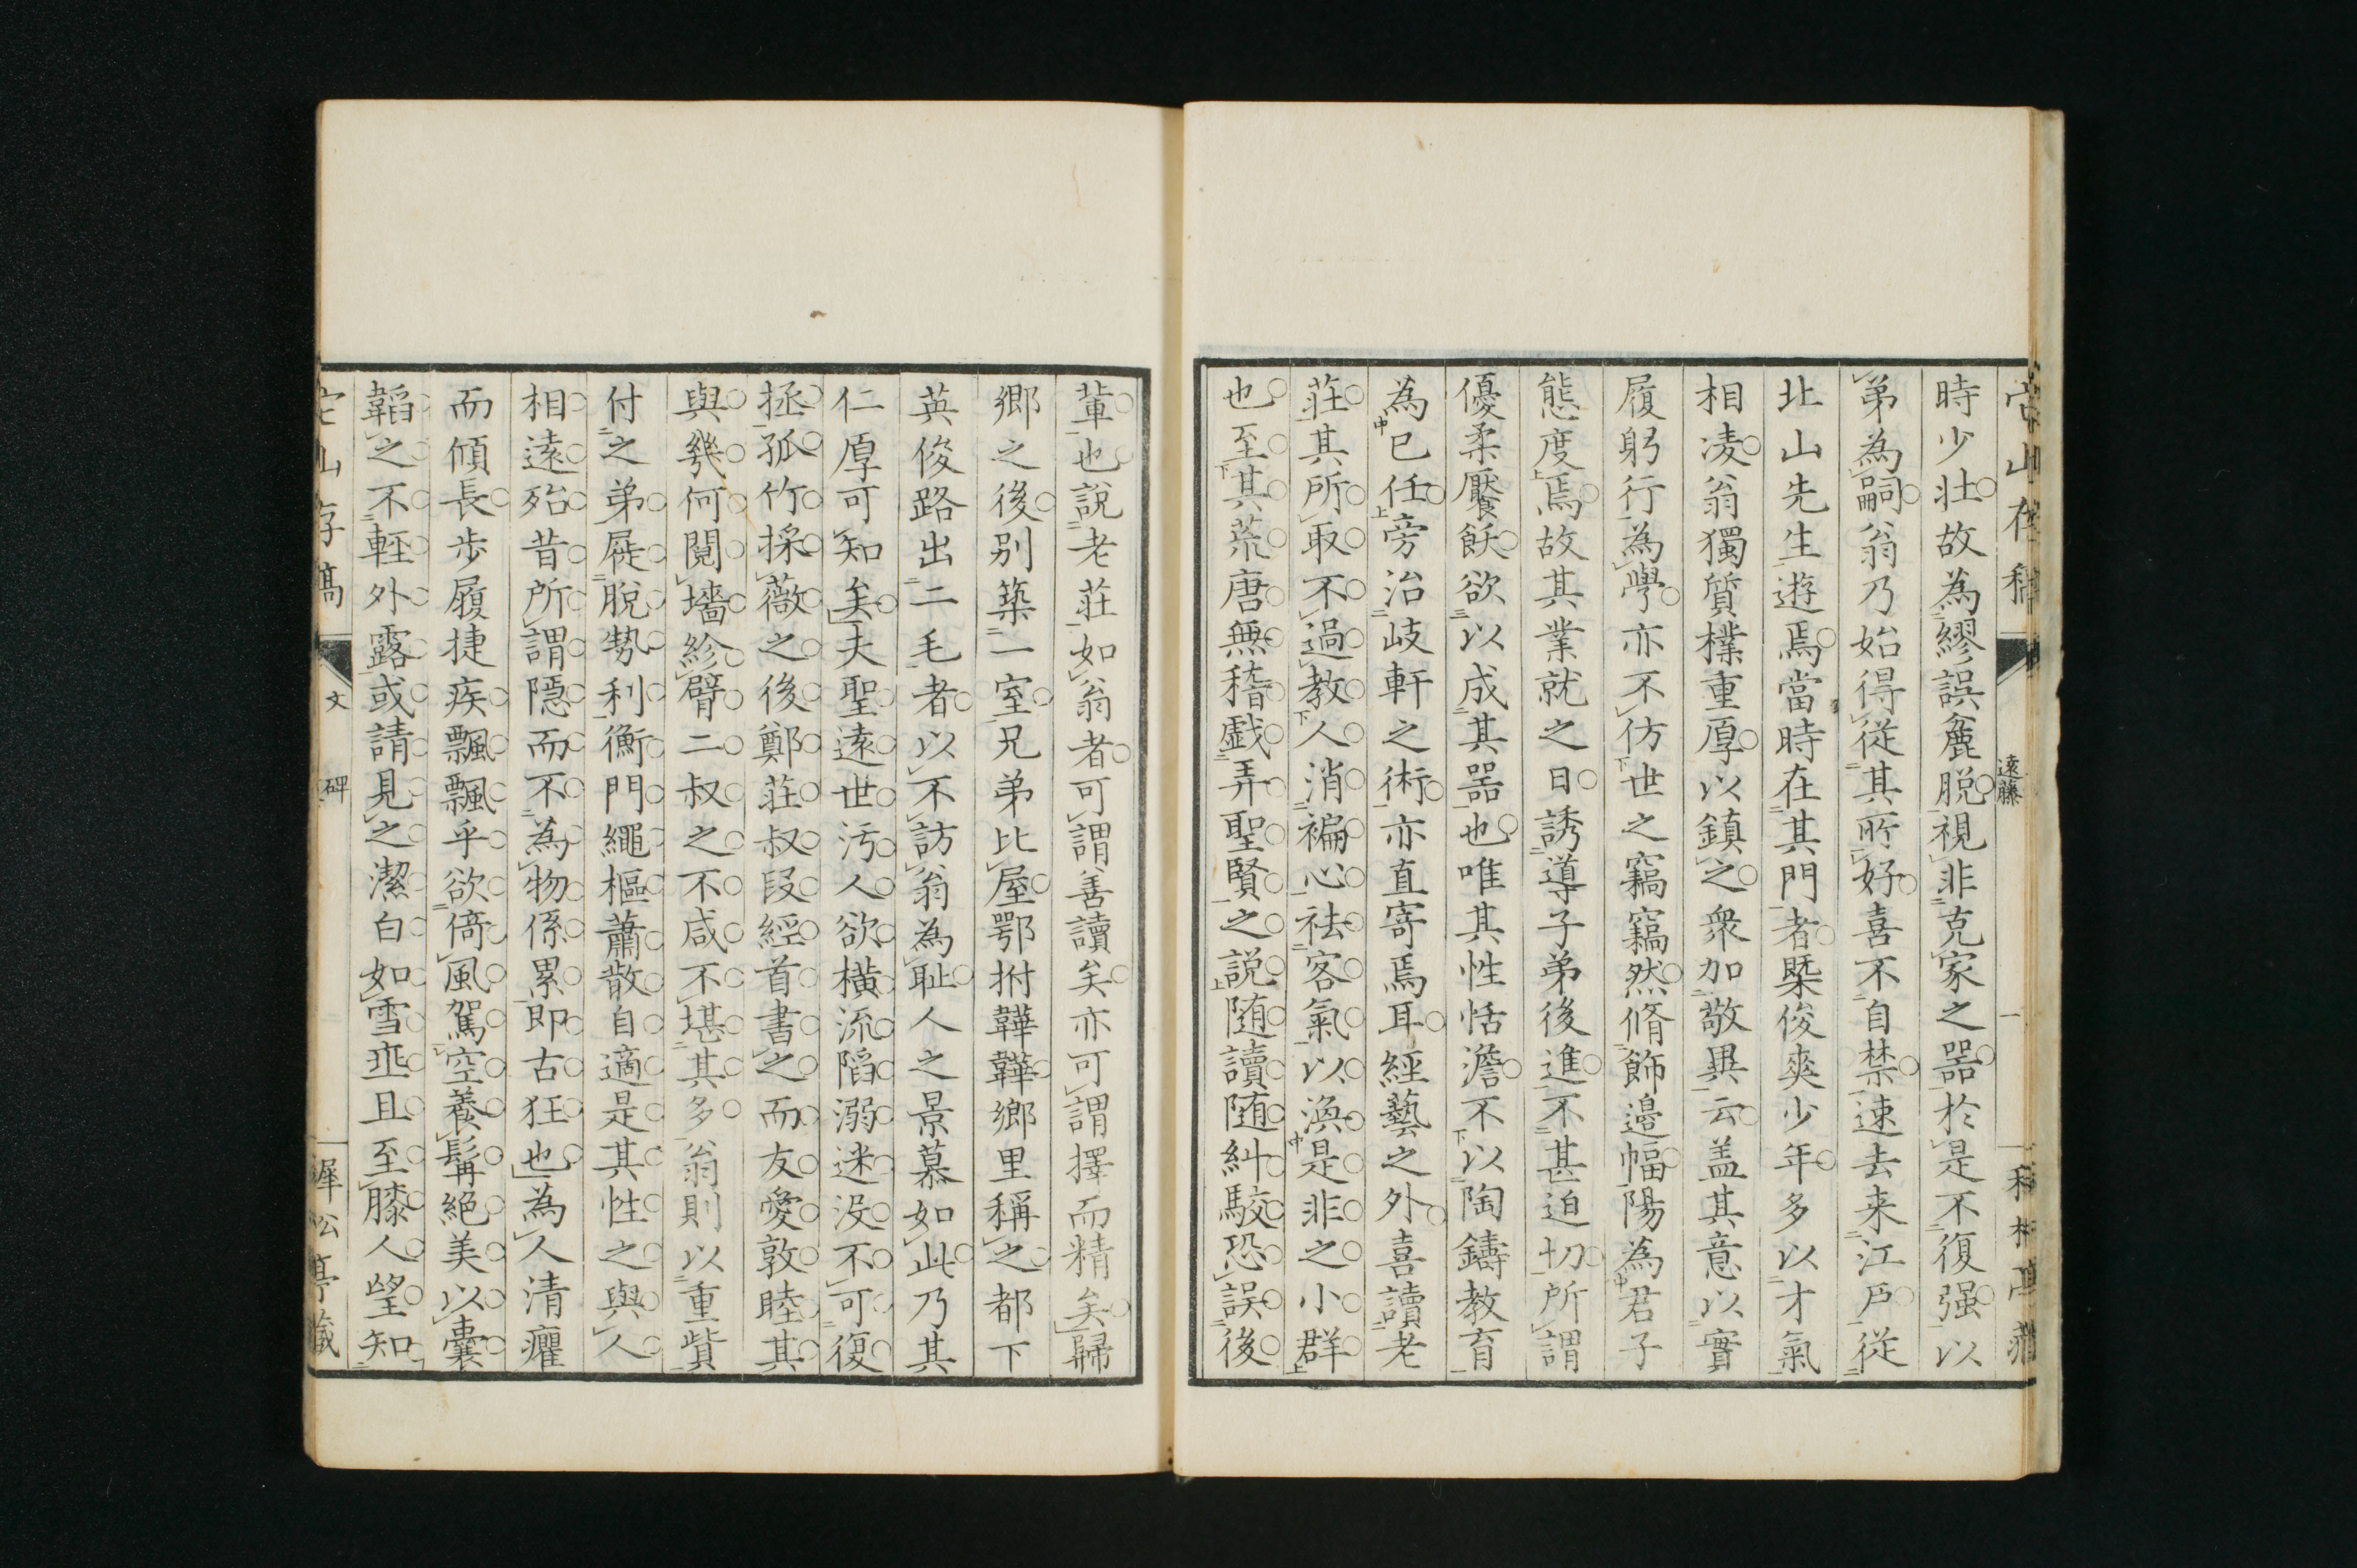 時少壮故為繆誤麁脱視非克家之器於是不復强以
弟為嗣翁乃始得從其所好喜不自禁速去来江戸從
北山先生遊焉當時在其門者槩俊爽少年多以才氣
相凌翁獨質樸重厚以鎮之衆加敬異云盖其意以實
履躬行為學亦不仿世之竊竊然脩飾邊幅陽為君子
態度焉故其業就之日誘導子弟後進不甚迫切所謂
優柔饜飫欲以成其器也唯其性恬澹不以陶鑄教育
為已任旁治岐軒之術亦直寄焉耳經藝之外喜讀老
莊其所取不過教人消褊心祛客氣以渙是非之小群
也至其荒唐無稽戯弄聖賢之説随讀随糾駁恐誤後
軰也說老莊如翁者可謂善讀矣亦可謂擇而精矣歸
鄉之後别築一室兄弟比屋鄂拊韡韡鄉里稱之都下
英俊路出二毛者以不訪翁為耻人之景慕如此乃其
仁厚可知矣夫聖遠世汚人欲横流䧟溺迷没不可復
拯孤竹採薇之後鄭莊叔段經首書之而友愛敦睦其
與幾何䦧墻紾臂二叔之不咸不堪其多翁則以重貲
付之弟屣脫勢利衡門繩樞蕭散自適是其性之與人
相遠殆昔所謂隠而不為物係累即古狂也為人清癯
而頎長步履捷疾飄飄乎欲倚風駕空養髯絕美以囊
韜之不輕外露或請見之潔白如雪埀且至膝人望知
遠藤
文
碑